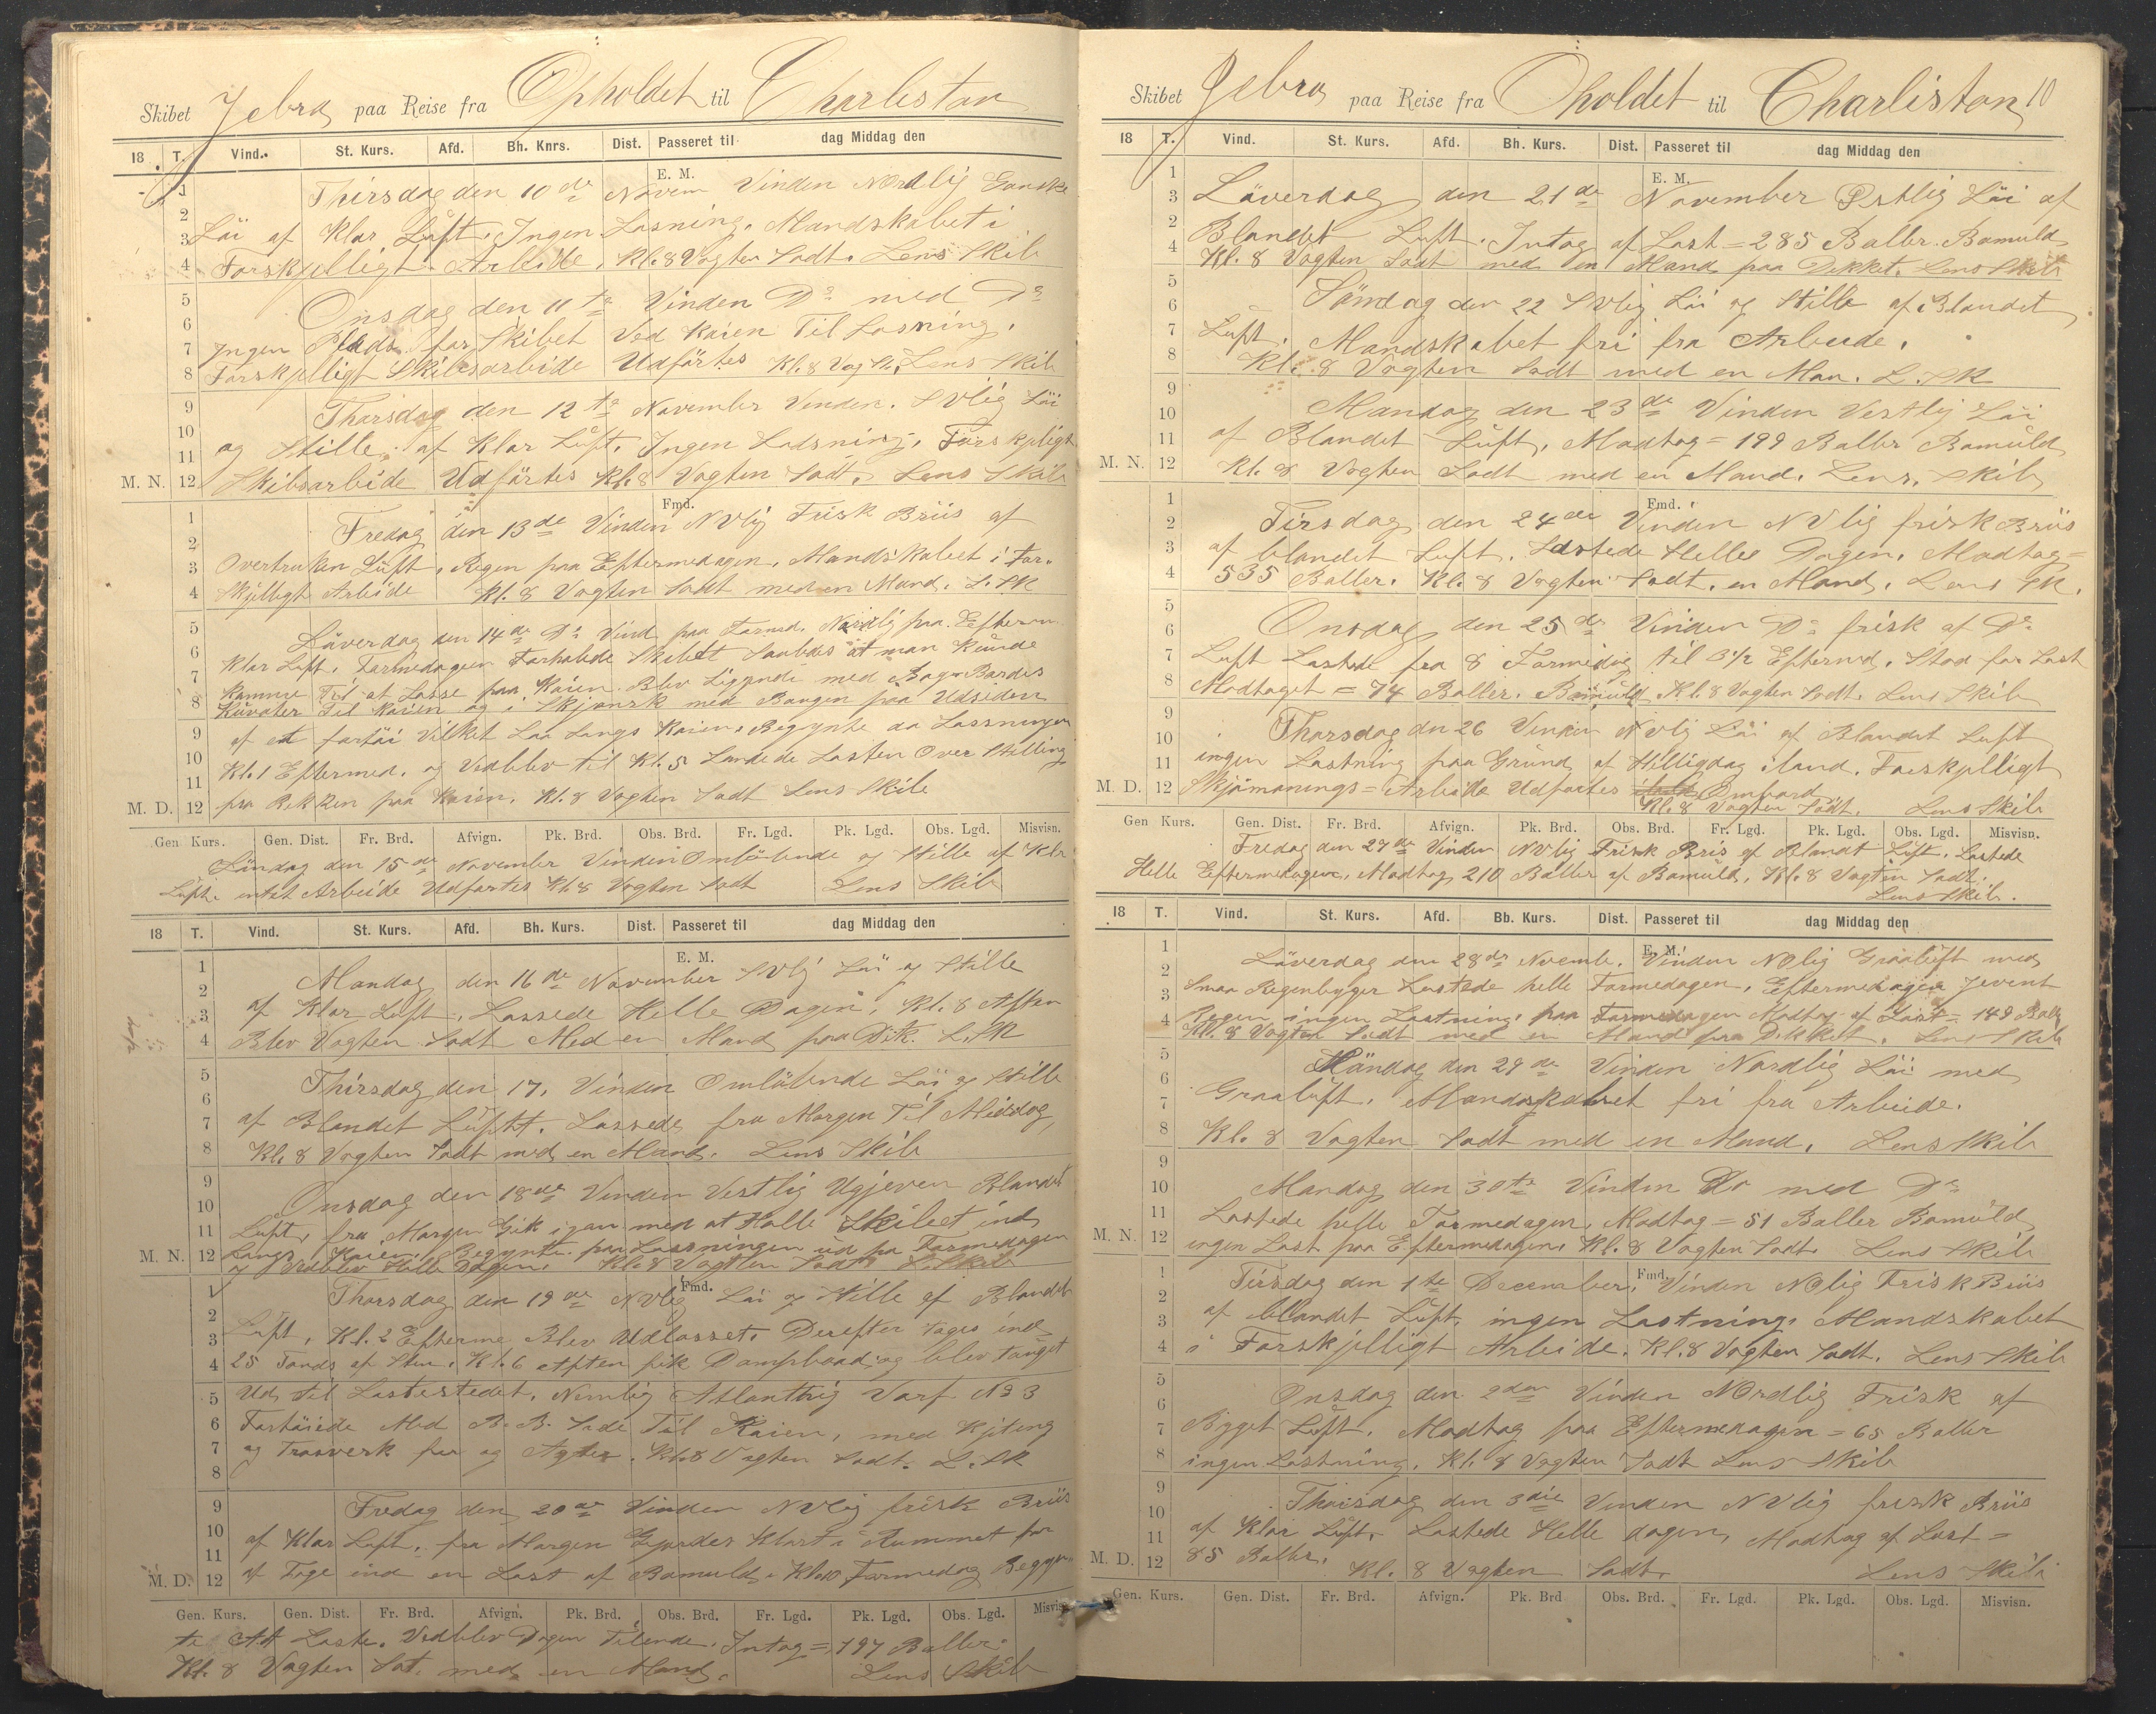 Skibet Jebra paa Reise fra Opholdet til Charlestan
18 T. Vind. St. Kurs. Afd. Bh. Knrs. Dist. Passeret til dag Middag den
E. M.
Thirsdag den 10de Novem Vinden Nordlig Ganske
Läi af Klar Luft. Ingen Losning. Mandskabet i
Forskjelligt Arbeide. Kl. 8 Vagten Sadt. Lens Skib
Onsdag den 11te Vinden Do med Do
Ingen Plads for Skibet Ved Kaien Til Losning.
Forskjelligt Skibsarbeide Udførtes Kl. 8 Vag St. Lens Skib
Tharsdag den 12te November Vinden. SVlig Läi
og Stille af Klar Luft. Ingen Lodsning. Forskjeligt
M. N. Skibsarbeide Udførtes Kl. 8 Vagten Sadt. Lens Skib
Fmd.
Fredag den 13de Vinden NVlig Frisk Briis af
Overtruken Luft, Regen paa Eftermedagen. Mandskabet i For-
skjelligt Arbeide Kl. 8 Vagten Sadt med en Mand. L. SK
Läverdag den 14de Do Vind paa Formd. Nordlig paa Efterm
Klar Luft. Formedagen Forhalede Skibet Saaledes at man Kunde
Kamme Til at Losse paa Kaien. Blev Liggende med Bagn Bordes
Kuvater Til Kaien og i Skjønsk med Baugen paa Udsiden
af et fartøi Vilket Laa Langs Kaien. Begynte da Lossningen
Kl. 1 Eftermed. og Vedblev til Kl. 5 Landede Lasten Over Stilling
M. D. fra Rekken paa Kaien. Kl. 8 Vagten Sadt Lens Skib
Gen Kurs. Gen. Dist. Fr. Brd. Afvign. Pk. Brd. Obs. Brd. Fr. Lgd. Pk. Lgd. Obs. Lgd. Misvisn.
Søndag den 15de November Vinden Omløbende og Stille af Klar
Luft. intet Arbeide Udførtes Kl. 8 Vagten Sadt Lens Skib
18 T. Vind. St. Kurs. Afd. Bh. Kurs. Dist. Passeret til dag Middag den
E. M.
Mandag den 16de November SVlj Läi og Stille
af Klar Luft. Lassede Helle Dagen, Kl. 8 Aften
Blev Vagten Sadt Med en Mand paa Dek. L. SK
Thirsdag den 17. Vinden Omløbende Läi og Stille
af Blandet Luft. Lassede fra Morgen Til Middag,
Kl. 8 Vagten Sadt med en Mand. Lens Skib
Onsdag den 18de Vinden Vestlig Ugjeven Blandet
Luft, fra Morgen Gik igan med at Halle Skibet ind
M. N. Langs Kaien. Begynte paa Lassningen ud paa Formedagen
og Vedblev Helle Dagen. Kl. 8 Vagten Sadt L. Skib
Fmd.
Tharsdag den 19de NVlig Läi og Stille af Blandet
Luft, Kl. 2 Efterme Blev Udlosset. Derefter toges ind
25 Tonds af Sten. Kl. 6 Aften fik Dampbaad og blev tauget
Ud til Lastestedet. Nemlig Atlanthig Varf No 3
Fortøiede Med B. B. Side Til Kaien, med Kjeting
og Trosverk for og Agter. Kl. 8 Vagten Sadt. L. SK
Fredag den 20de Vinden NVlig frisk Briis
af Klar Luft. fra Morgen Gjordes Klart i Rummet for
M. D. at Tage ind en Last af Bomuld. Kl. 10 Formedag Begyn
Gen. Kurs. Gen. Dist. Fr. Brd. Afvign. Pk. Brd. Obs. Brd. Fr. Lgd. Pk. Lgd. Obs. Lgd. Misvisn.
te At Laste. Vedblev Dagen Tilende. Intog = 197 Baller
Kl. 8 Vagten Sat. med en Mand. Lens Skib
Skibet Jebra paa Reise fra Oholdet til Charliston 10
18 T. Vind. St. Kurs. Afd. Bh. Kurs. Dist. Passeret til dag Middag den
E. M.
Läverdag den 21de November Østlig Läi af
Blandet Luft. Intog af Last = 285 Baller Bomuld
Kl. 8 Vagten Sadt med en Mand paa Dekket. Lens Skib
Søndag den 22 SVlig Läi og Stille af Blandet
Luft. Mandskabet fri fra Arbeide.
Kl. 8 Vagten Sadt med en Man. L. SK
Mandag den 23de Vinden Vestlig Läi
af Blandet Luft. Modtog = 199 Baller Bomuld
M. N. Kl. 8 Vagten Sadt med en Mand. Lens. Skib
Fmd.
Tirsdag den 24de Vinden NVlig frisk Briis
af blandet Luft. Lastede Helle Dagen. Modtog =
535 Baller. Kl. 8 Vagten Sadt. en Mand. Lens SK.
Onsdag den 25de Vinden Do frisk af Do
Luft Lastede fra 8 Formidag til 3 1/2 Eftermd. Stod for Last
Modtaget = 74 Baller. Bomuld Kl. 8 Vagten Sadt. Lens Skib
Tharsdag den 26 Vinden NVlig Läi af Blandet Luft
ingen Lastning paa Grund af Helligdag iland. Forskjelligt
M. D. Skjømanings = Arbeide Udførtes Ombord
Kl. 8 Vagten Sadt. Lens Skib
Gen Kurs. Gen. Dist. Fr. Brd. Afvign. Pk. Brd. Obs. Brd. Fr. Lgd. Pk. Lgd. Obs. Lgd. Misvisn.
Fredag den 27de Vinden NVlig Frisk Bris af Blandt Luft. Lastede
Helle Eftermedagen. Modtog 210 Baller af Bomuld. Kl. 8 Vagten Sadt.
Lens Skib.
18 T. Vind. St. Kurs. Afd. Bb. Kurs. Dist. Passeret til dag Middag den
E. M.
Läverdag den 28de Novemb. Vinden NOlig Graaluft med
Smaa Regenbyger Lastede helle Formedagen. Eftermedagen Jevent
Regen ingen Lastning. paa Formedagen Modtog af Last = 149 Balle
Kl. 8 Vagten Sadt med en Mand paa Dekket. Lens Skib
Søndag den 29de Vinden Nordlig Läi med
Graaluft. Mandskabet fri fra Arbeide.
Kl. 8 Vagten Sadt med en Mand. Lens Skib
Mandag den 30te Vinden Do med Do
Lastede helle Formedagen. Modtog = 51 Baller Bomuld
M. N. ingen Last paa Eftermedagen. Kl. 8 Vagten Sadt. Lens Skib
Fmd.
Tirsdag den 1te December. Vinden NOlig Frisk Briis
af blandet Luft. ingen Lastning. Mandskabet
i Forskjelligt Arbeide. Kl. 8 Vagten Sadt. Lens Skib
Onsdag den 2den Vinden Nordlig Frisk af
Bygget Luft. Modtog paa Eftermedagen = 65 Baller
ingen Lastning. Kl. 8 Vagten Sadt Lens Skib
Thoisdag den 3die Vinden NVlig frisk Briis
af Klar Luft. Lastede Helle dagen, Modtog af Last =
M. D. 85 Baller. Kl. 8 Vagten Sadt. Lens Skib
Gen. Kurs. Gen. Dist. Fr. Brd. Afvign. Pk. Brd Obs. Brd. Fr. Lgd. Pk. Lgd. Obs. Lgd. Misvisn.